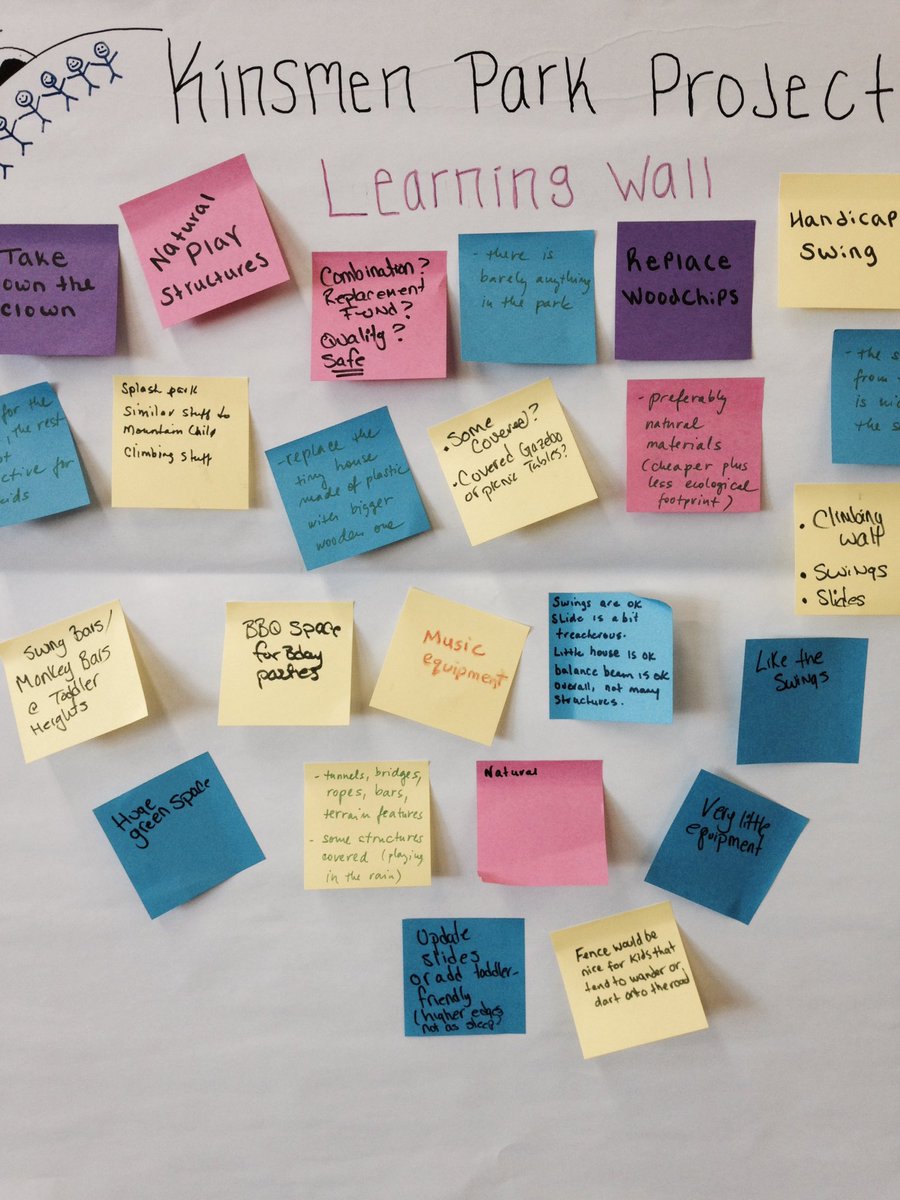 Kinsmen Park Project
Learning Wall
Take
own the
clown
Natural
Play
Structures
Combination?
Replacement
Fund?
Quality?
Safe
- there is
barely anything
in the park
Replace
Woodchips
Handicap
Swing
for the
, the rest
ot
active for
kids
Splash park
Similar stuff to
Mountain Child
Climbing stuff
- replace the
tiny house
made of plastic
with bigger
wooden one
• Some
covered?
• Covered Gazebo
or picnic
Tables?
- preferably
natural
materials
(cheaper plus
less ecological
footprint)
- the s
from
is ni
the s
• Climbing
wall
• Swings
• Slides
Swing Bars/
Monkey Bars
@ Toddler
Heights
BBQ Space
for Bday
parties
Music
equipment
Swings are OK
Slide is a bit
treacherous.
Little house is ok
balance beam is ok
overall, not many
structures.
Like the
Swings
Huge
green space
- tunnels, bridges,
ropes, bars,
terrain features
- some structures
covered (playing
in the rain)
Natural
Very little
equipment
Update
slides
or add toddler-
friendly
(higher edges
not as steep)
Fence would be
nice for kids that
tend to wander or
dart onto the road